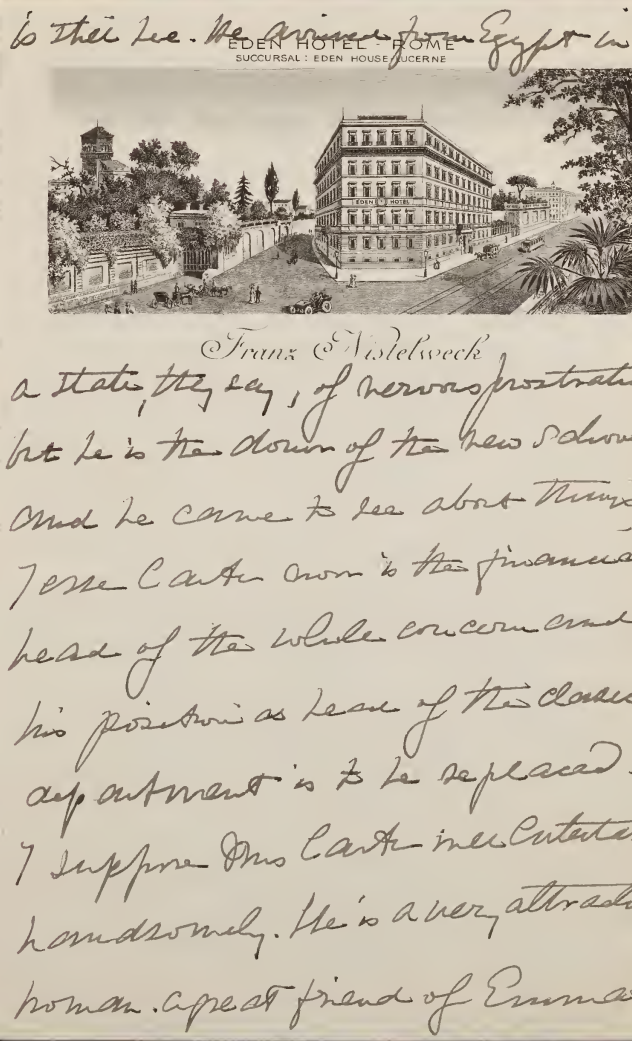 is still here. He arrived from Egypt in
EDEN HOTEL - ROME
SUCCURSAL : EDEN HOUSE LUCERNE
EDEN HOTEL
Franz Nistelweck
a state, they say, of nervous prostrati
but he is the of the new School
and he came to see about things
Jesse Carter now is the financia
head of the whole concern and
his position as head of the classic
department is to be replaced.
I suppose Mrs Carter will enterta
handsomely. He is a very attracti
woman. a great friend of Emma